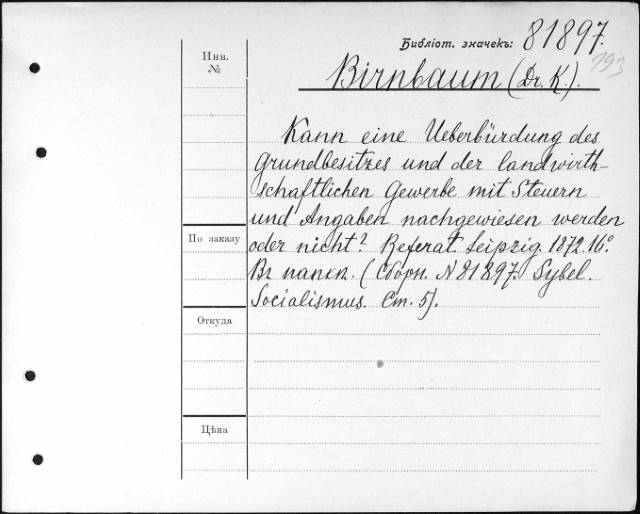 Библіот. значекъ: 81897.
193
Инв.
№
Birnbaum (Dr. K.).
Kann eine Ueberbürdung des
Grundbesitzes und der landwirth-
schaftlichen Gewerbe mit Steuern
und Angaben nachgewiesen werden
По заказу
oder nicht? Referat. Leipzig. 1872. 16°.
Въ папкѣ. (Сборн. N 81897. Sybel.
Socialismus. Ст. 5).
Откуда
Цѣна